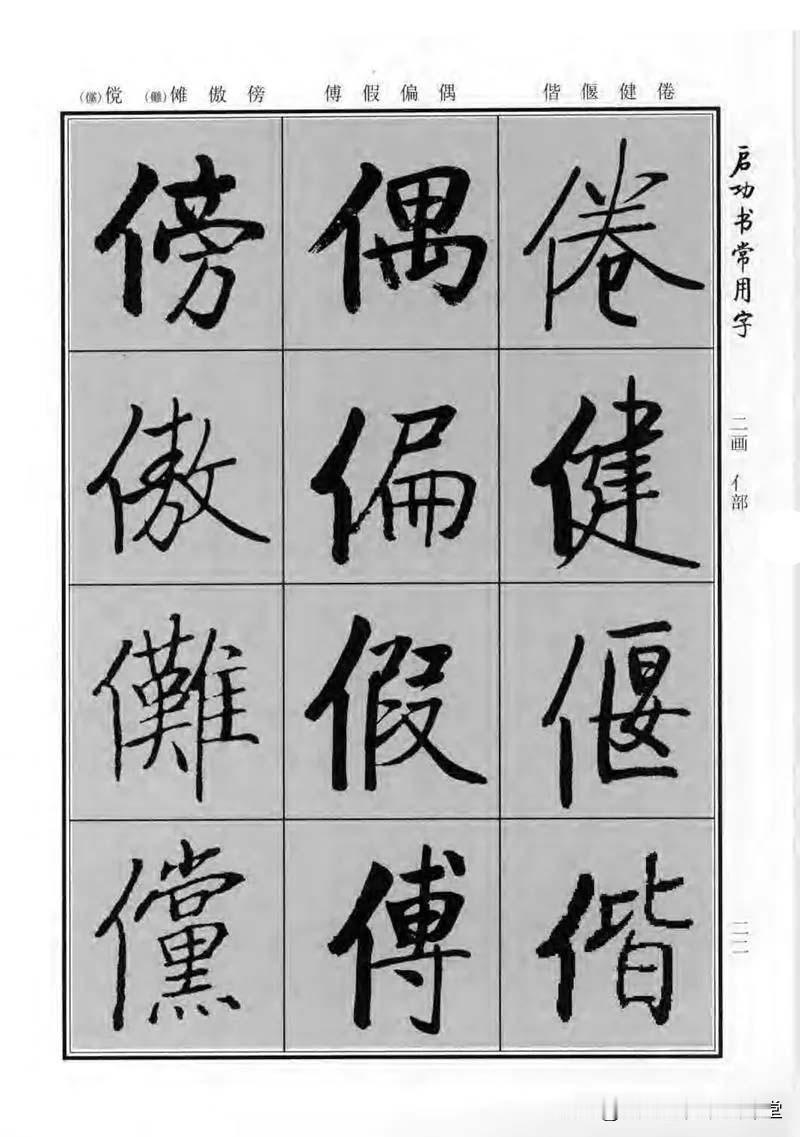 启功书常用字
二画 亻部
倦健偃偕
偶偏假傅
傍傲傩(儺)傥(儻)
倦健偃偕
偶偏假傅
傍傲儺儻